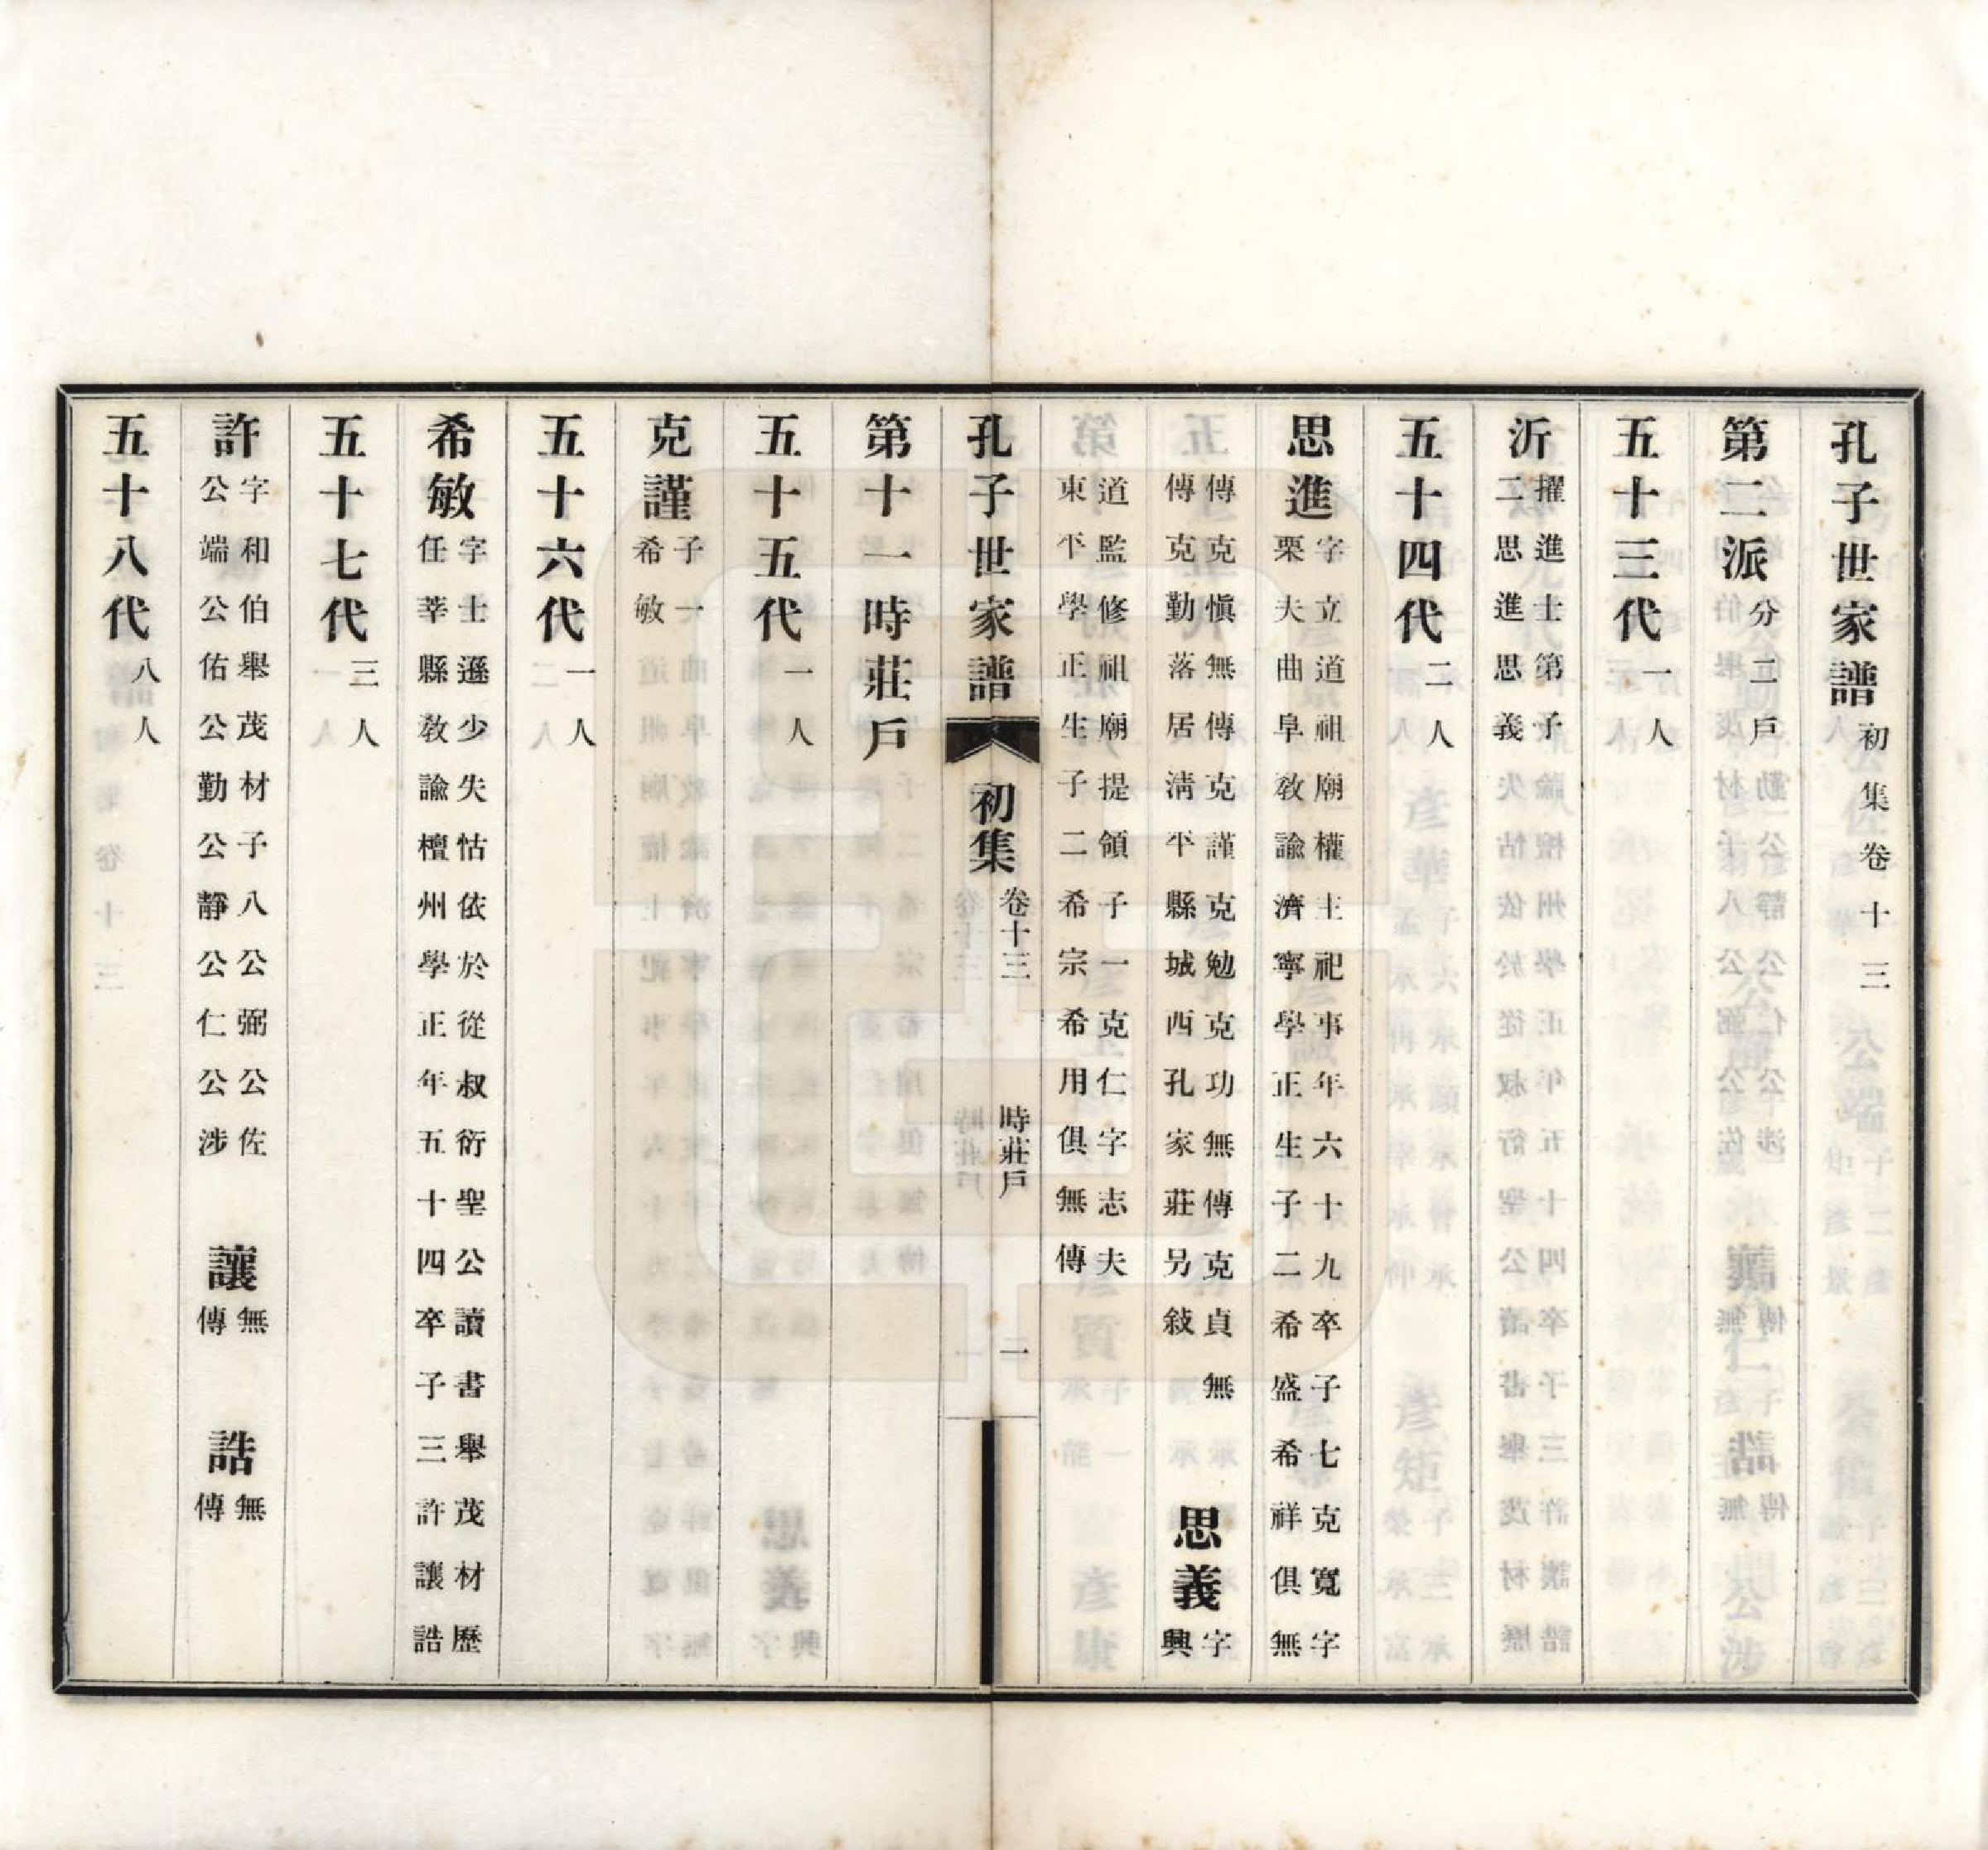 孔子世家譜初集卷十三
第二派分二戶
五十三代一人
沂擢進士第子二思進思義
五十四代二人
思進字立道祖廟權主祀事年六十九卒子七克寬字栗夫曲阜教諭濟寧學正生子二希盛希祥俱無
傳克愼無傳克謹克勉克功無傳克貞無傳克勤落居淸平縣城西孔家莊另敍 思義字興
道監修祖廟提領子一克仁字志夫東平學正生子二希宗希用俱無傳
孔子世家譜 初集 卷十三 時莊戶 一
第十一時莊戶
五十五代一人
克謹子一希敏
五十六代一人
希敏字士遜少失怙依於從叔衍聖公讀書舉茂材歷任莘縣敎諭檀州學正年五十四卒子三許讓誥
五十七代三人
許字和伯舉茂材子八公弼公佐公端公佑公勤公靜公仁公涉 讓無傳 誥無傳
五十八代八人